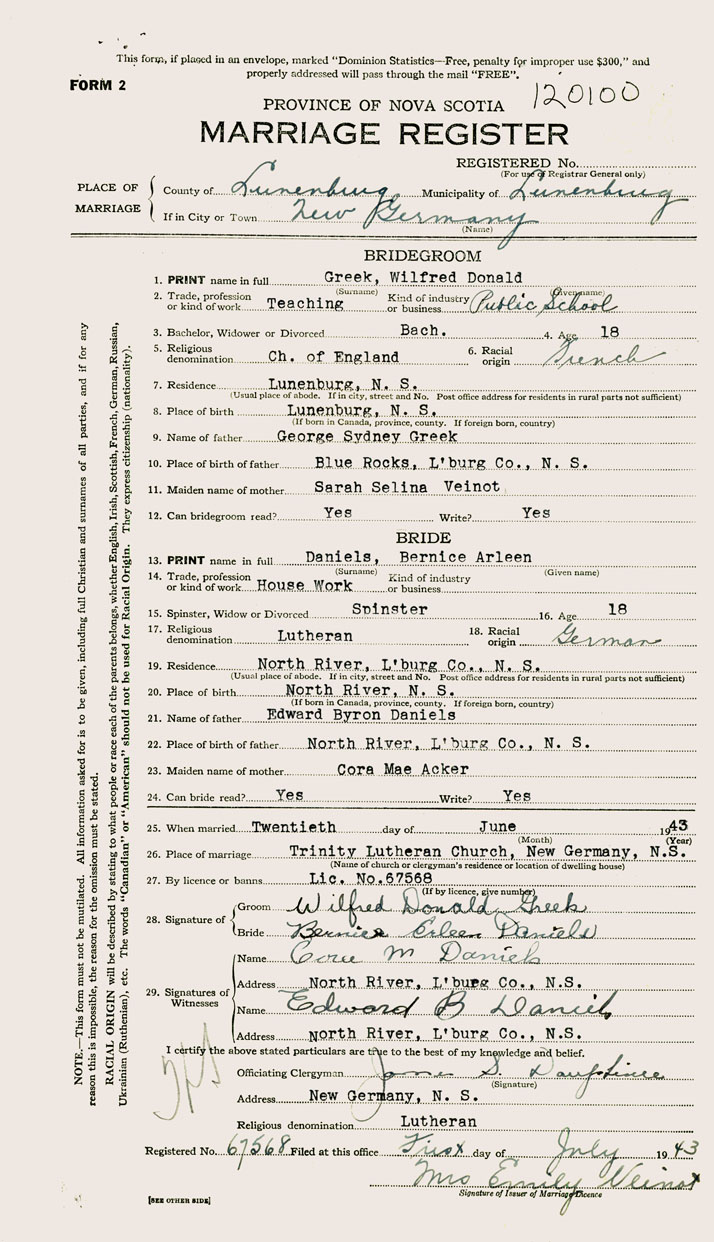 This form, if placed in an envelope, marked "Dominion Statistics—Free, penalty for improper use $300," and
properly addressed will pass through the mail "FREE".
FORM 2
120100
PROVINCE OF NOVA SCOTIA
MARRIAGE REGISTER
REGISTERED No.
(For use of Registrar General only)
PLACE OF MARRIAGE
County of Lunenburg Municipality of Lunenburg
If in City or Town New Germany
(Name)
BRIDEGROOM
1. PRINT name in full Greek, Wilfred Donald
(Surname) (Given name)
2. Trade, profession or kind of work Teaching Kind of industry or business Public School
3. Bachelor, Widower or Divorced Bach. 4. Age 18
5. Religious denomination Ch. of England 6. Racial origin French
7. Residence Lunenburg, N. S.
(Usual place of abode. If in city, street and No. Post office address for residents in rural parts not sufficient)
8. Place of birth Lunenburg, N. S.
(If born in Canada, province, county. If foreign born, country)
9. Name of father George Sydney Greek
10. Place of birth of father Blue Rocks, L'burg Co., N. S.
11. Maiden name of mother Sarah Selina Veinot
12. Can bridegroom read? Yes Write? Yes
BRIDE
13. PRINT name in full Daniels, Bernice Arleen
(Surname) (Given name)
14. Trade, profession or kind of work House Work Kind of industry or business
15. Spinster, Widow or Divorced Spinster 16. Age 18
17. Religious denomination Lutheran 18. Racial origin German
19. Residence North River, L'burg Co., N. S.
(Usual place of abode. If in city, street and No. Post office address for residents in rural parts not sufficient)
20. Place of birth North River, N. S.
(If born in Canada, province, county. If foreign born, country)
21. Name of father Edward Byron Daniels
22. Place of birth of father North River, L'burg Co., N. S.
23. Maiden name of mother Cora Mae Acker
24. Can bride read? Yes Write? Yes
25. When married Twentieth day of June 1943
(Month) (Year)
26. Place of marriage Trinity Lutheran Church, New Germany, N.S.
(Name of church or clergyman's residence or location of dwelling house)
27. By licence or banns Lic. No.67568
(If by licence, give number)
28. Signature of
Groom Wilfred Donald Greek
Bride Bernice Erleen Daniels
29. Signatures of Witnesses
Name M Daniels
Address North River, L'burg Co., N.S.
Name Edward B Daniels
Address North River, L'burg Co., N.S.
I certify the above stated particulars are true to the best of my knowledge and belief.
Officiating Clergyman S. Dauphinee
(Signature)
Address New Germany, N. S.
Religious denomination Lutheran
Registered No. 67568 Filed at this office First day of July 1943
Mrs Emily Veinot
Signature of Issuer of Marriage Licence
[SEE OTHER SIDE]
NOTE.—This form must not be mutilated. All information asked for is to be given, including full Christian and surnames of all parties, and if for any
reason this is impossible, the reason for the omission must be stated.
RACIAL ORIGIN will be described by stating to what people or race each of the parents belongs, whether English, Irish, Scottish, French, German, Russian,
Ukrainian (Ruthenian), etc. The words "Canadian" or "American" should not be used for Racial Origin. They express citizenship (nationality).